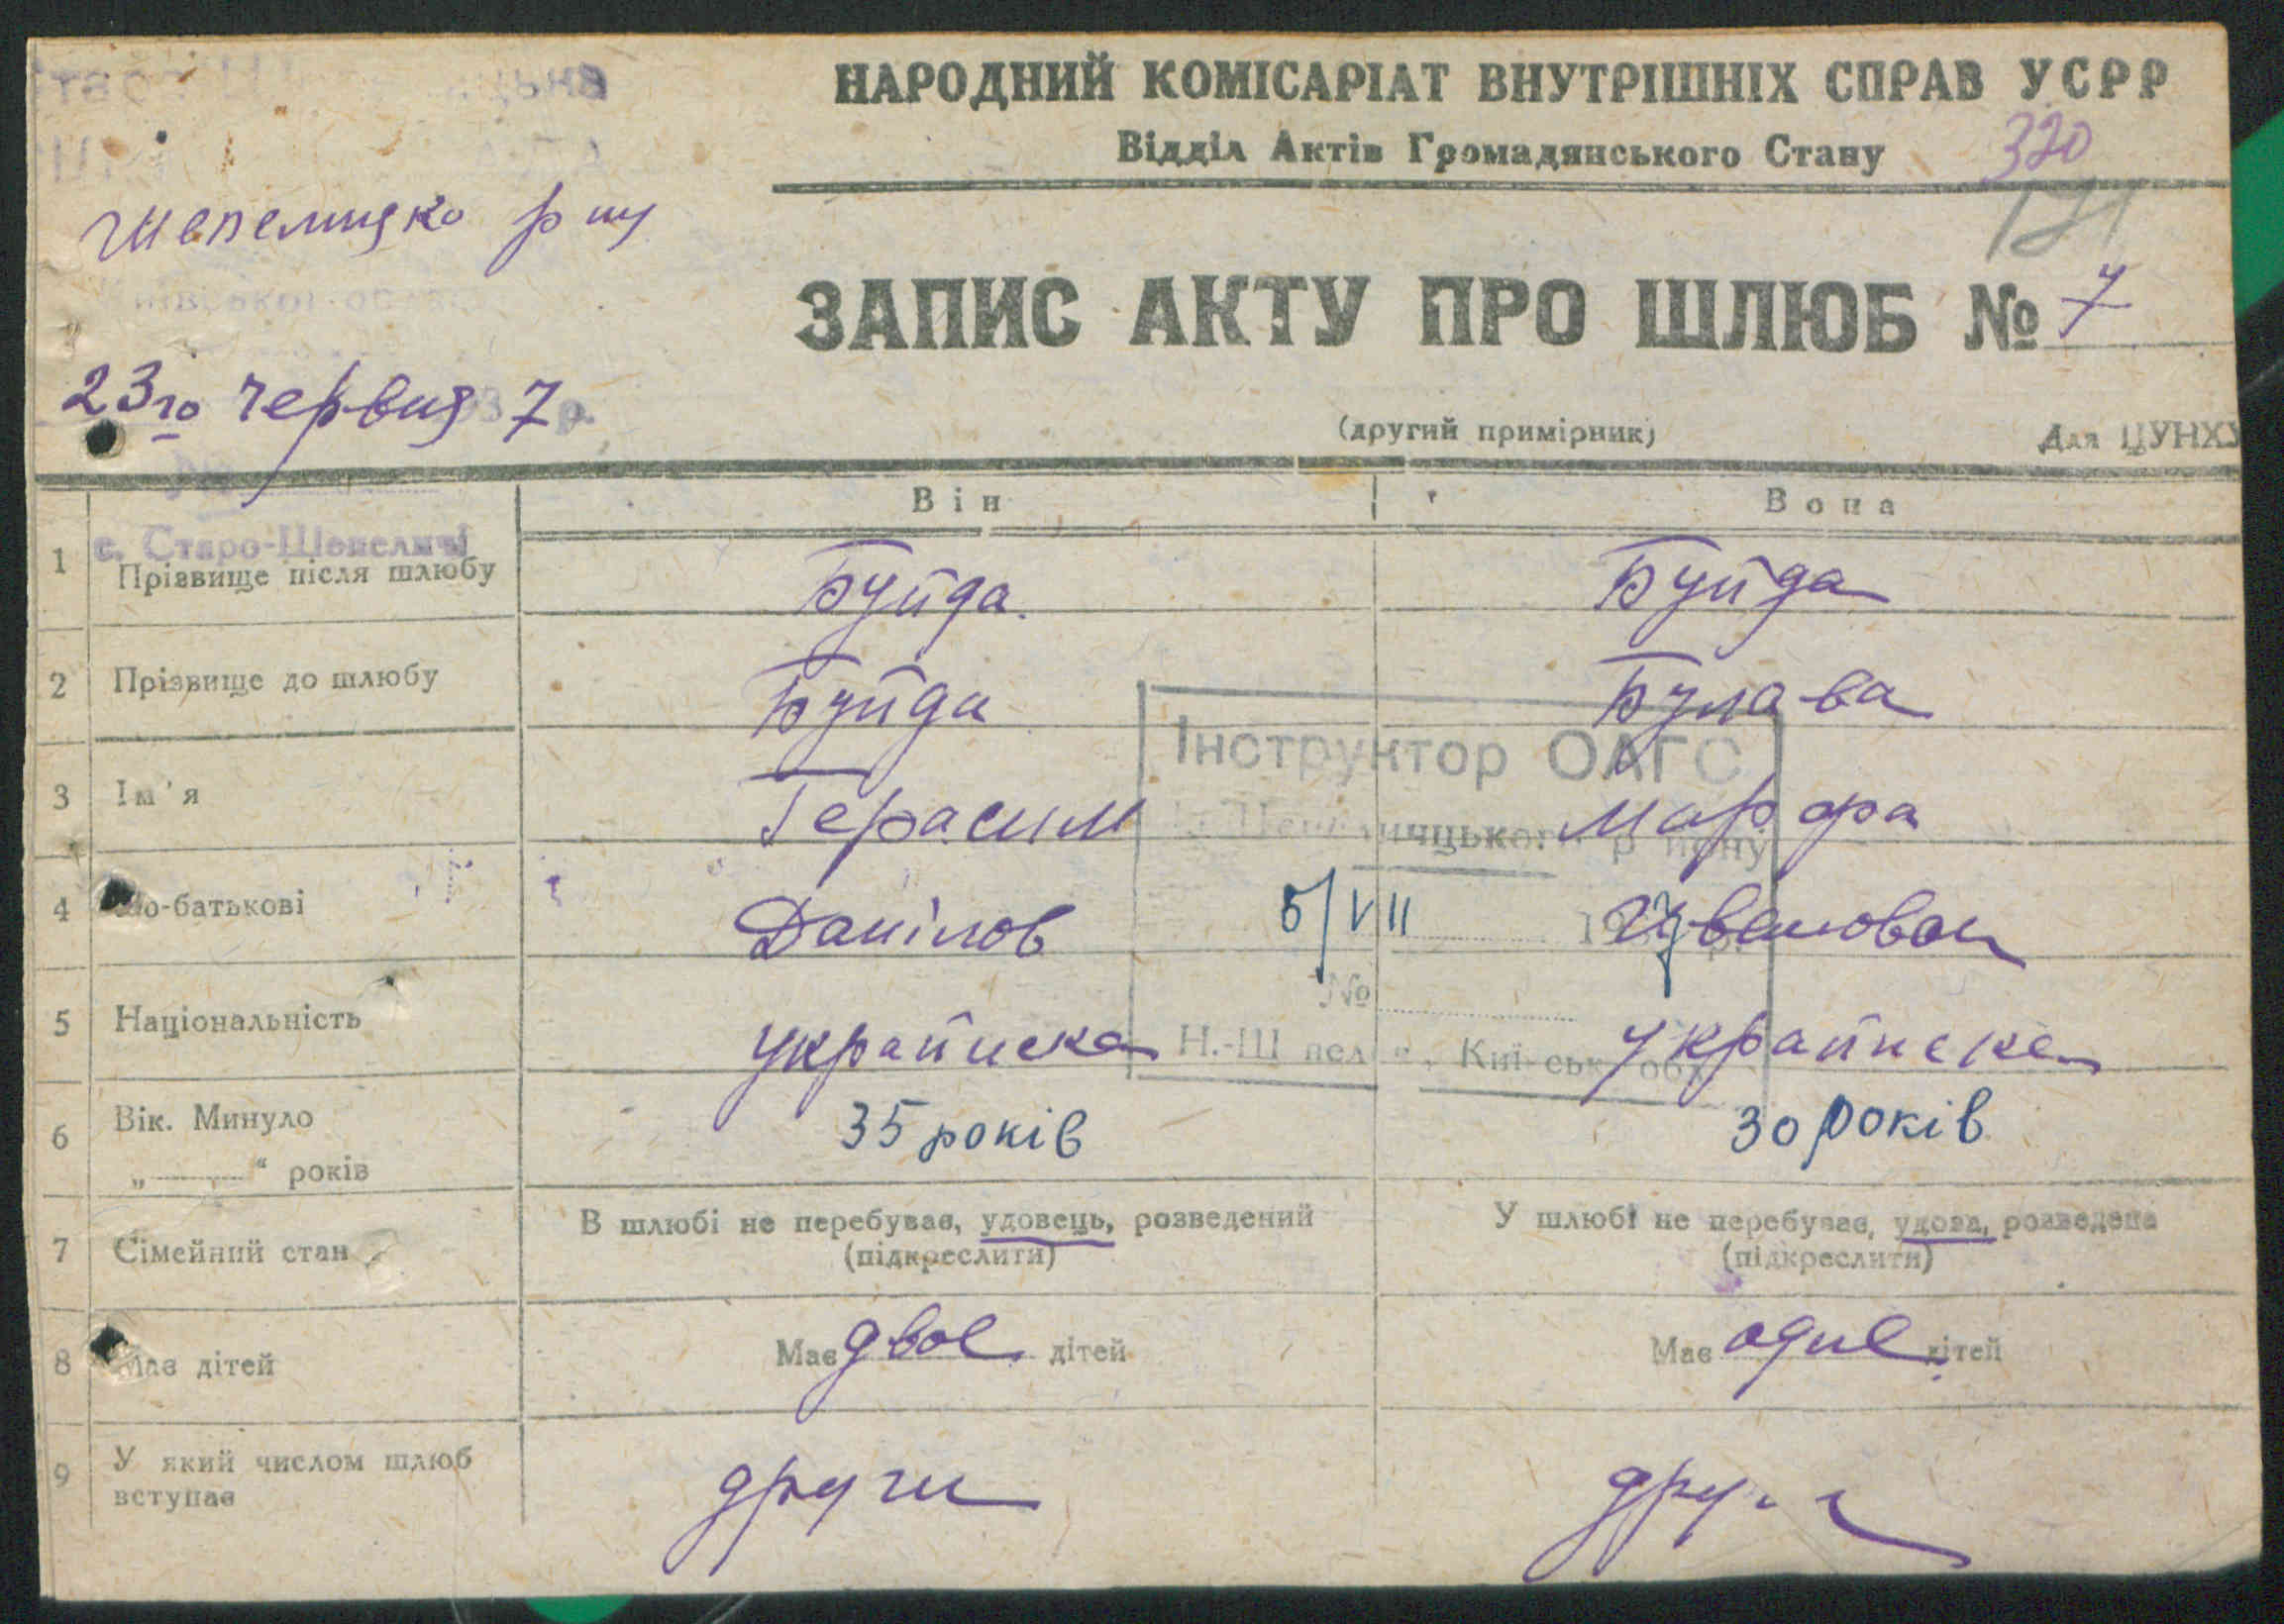 НАРОДНИЙ КОМІСАРІАТ ВНУТРІШНІХ СПРАВ УСРР
Відділ Актів Громадянського Стану 320
Шепелицко р ну
171
ЗАПИС АКТУ ПРО ШЛЮБ № 7
23го червня 7 р.
(другий примірник) Для ЦУНХУ
Він Вона
с. Старо-Шепеличі
1 Прізвище після шлюбу Буйда. Буйда
2 Прізвище до шлюбу Буйда Булава
Інструктор ОАГС
3 Ім'я Герасим Марфа
4 По-батькові Данілов Ивановна
5/VII 1937 р.
№
5 Національність украйнска украйнска
Н.-Шепеличі, Київськ. обл.
6 Вік. Минуло 35 років 30 років
„ “ років
7 Сімейний стан В шлюбі не перебував, удовець, розведений У шлюбі не перебуває, удова, розведена
(підкреслити) (підкреслити)
8 Має дітей Має двое дітей Має одне дітей
9 У який числом шлюб други
вступає